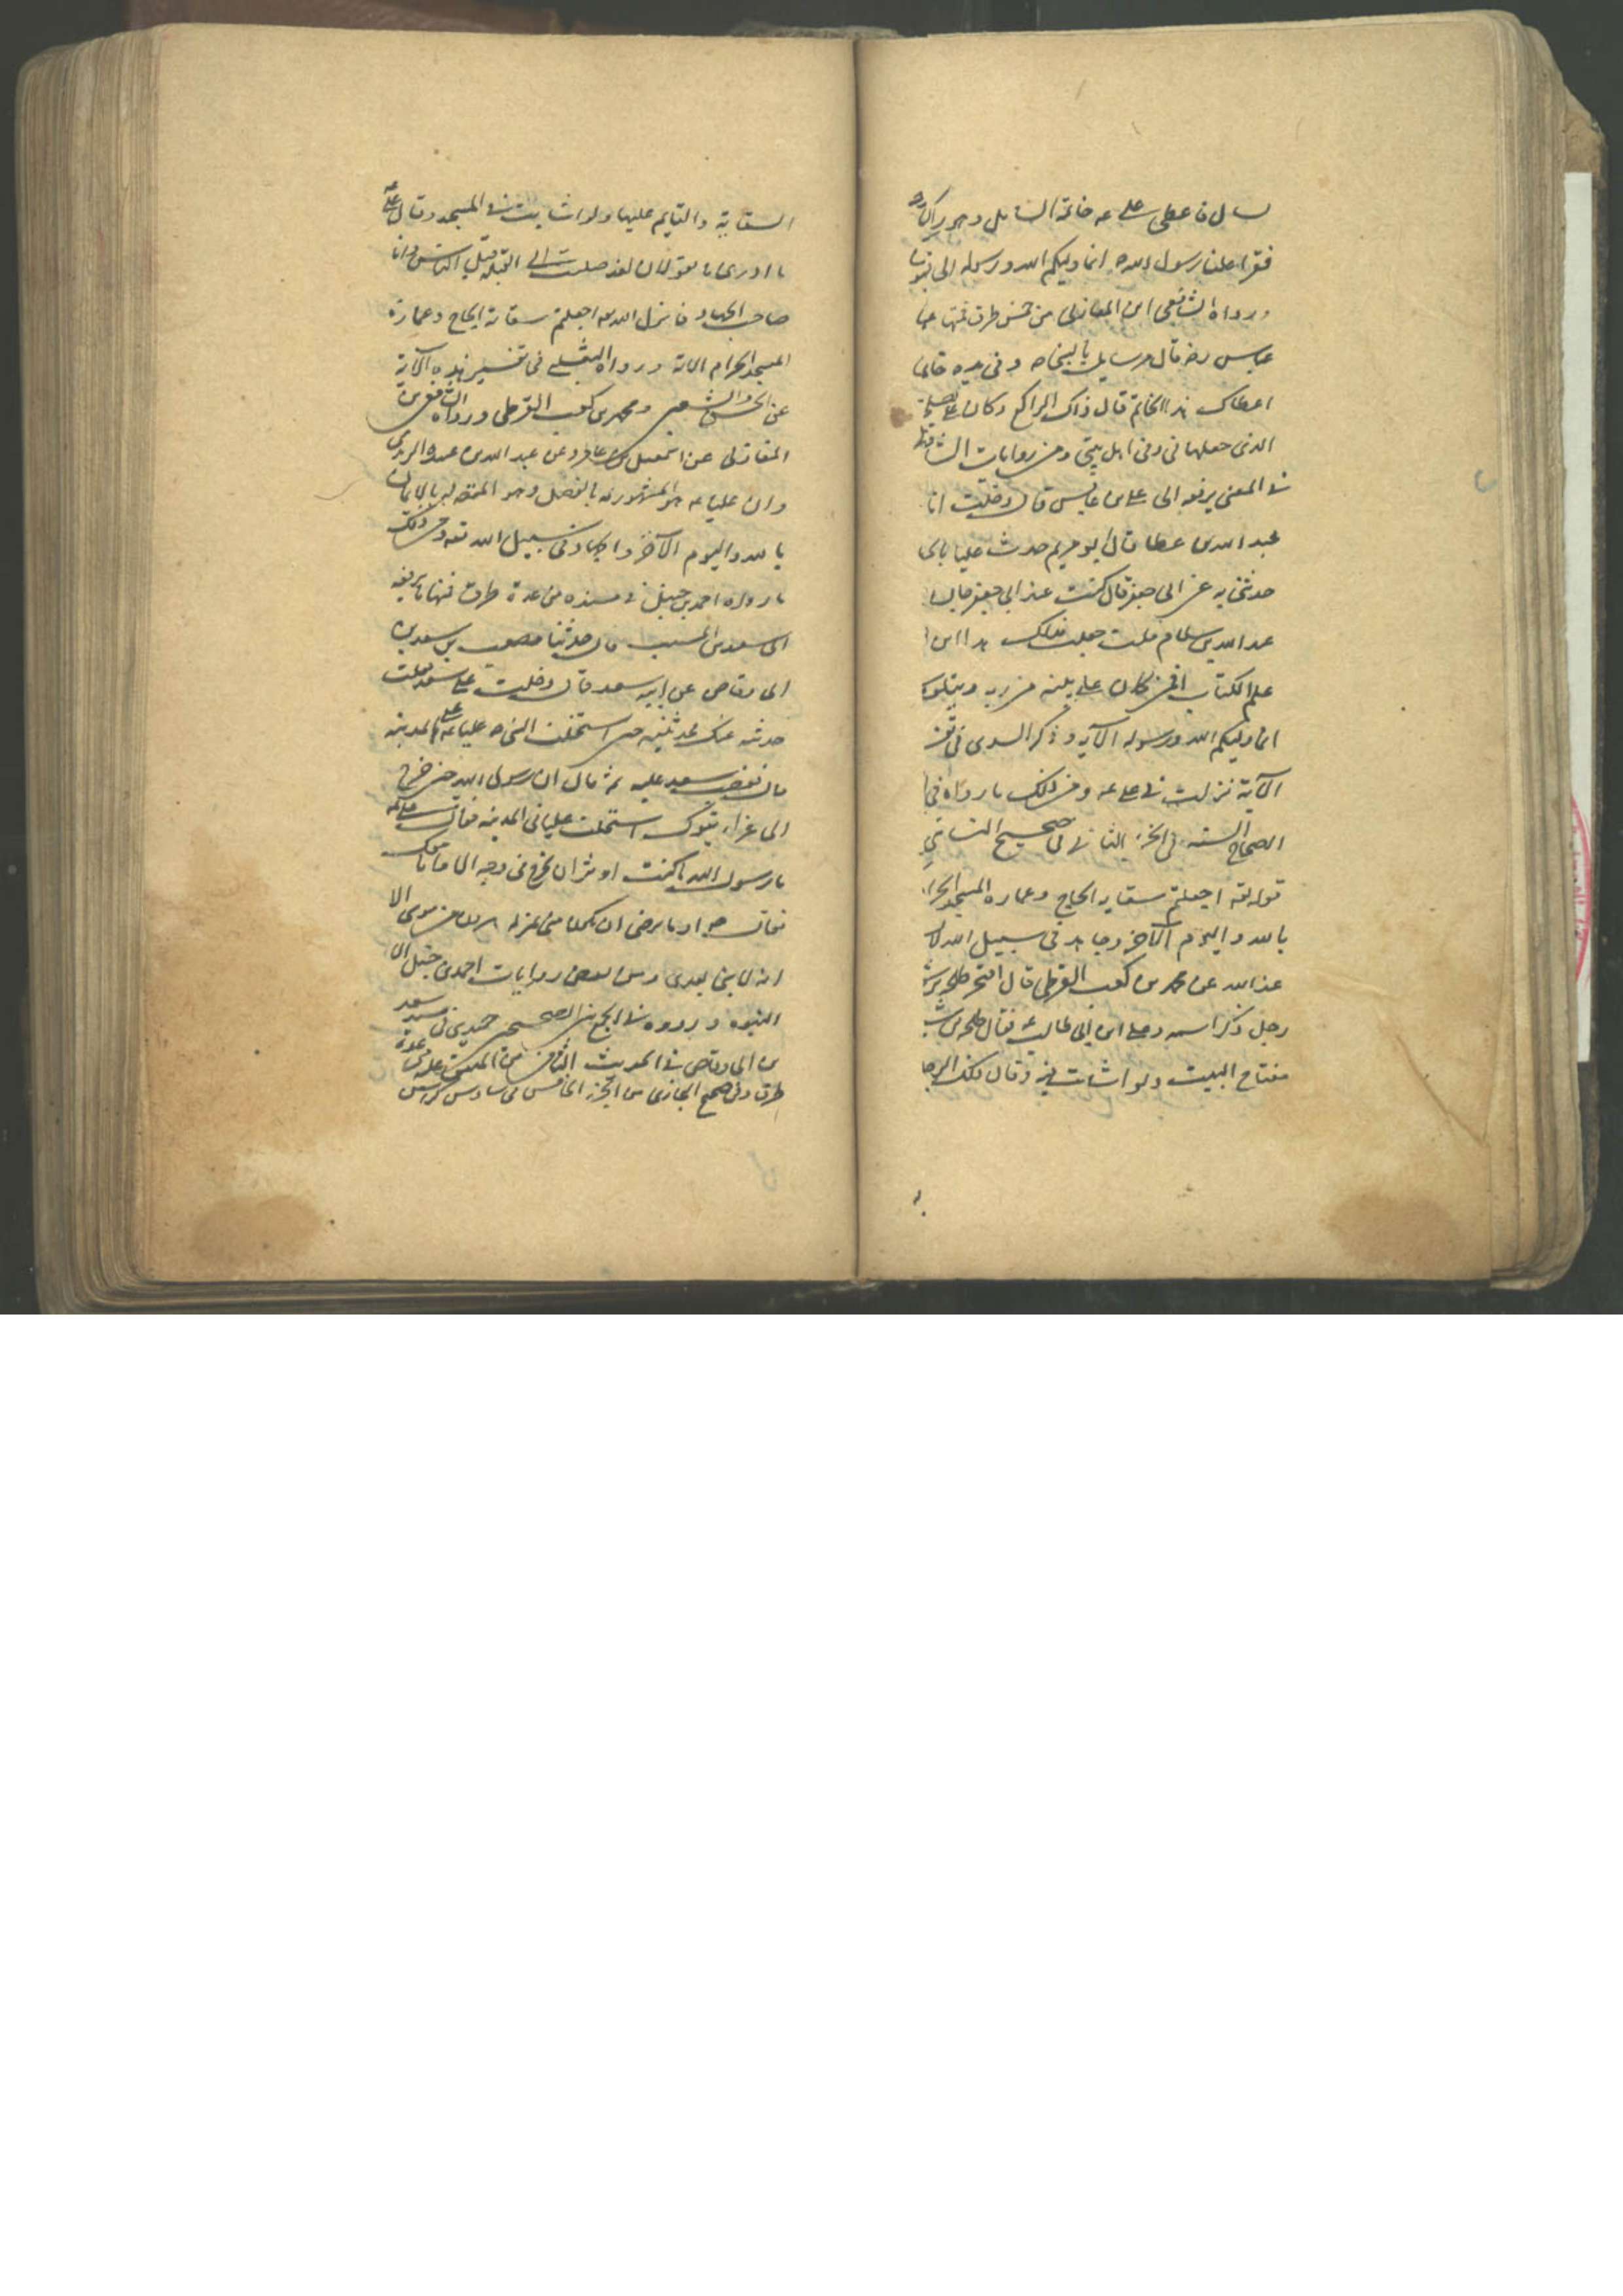 سال فاعطى على عه خاتمه السائل وهو راكع
فقرا علينا رسول الله ص انما وليكم الله ورسوله الى
ورواه الشافعى ابن المغازلى من خمس طرق فمنها عن
عباس رض قال مر سايل بالنبى ص وفى يده خاتم
اعطاك هذا الخاتم قال ذاك الراكع وكان على
الذى جعلها فى وفى اهل بيتى ومن روايات الشافعى
فى المعنى يرفعه الى على بن عابس قال دخلت انا
عبد الله بن عطا قال ابو مريم حدث عليا بالحديث
حدثنى به عن ابى جعفر قال كنت عند ابى جعفر جالسا
عبد الله بن سلام قلت جعلت فداك هذا ابن
علم الكتاب افمن كان على بينه من ربه ويتلوه
انما وليكم الله ورسوله الآيه وذكر السدى فى
الآية نزلت فى على عه ومن ذلك ما رواه فى
الصحاح السته فى الجزء الثانى من صحيح النسائى
قوله تعه اجعلتم سقايه الحاج وعماره المسجد الحرام
بالله واليوم الآخر وجاهد فى سبيل الله لا
عند الله عن محمد بن كعب القرظى قال افتخر طلحه بن
رجل ذكر اسمه وعلى ابن ابى طالب فقال طلحه بن
مفتاح البيت ولو اشاء بت فيه وقال ذلك الرجل
السقاية والقايم عليها ولو اشا بت فى المسجد وقال على عه
ما ادرى ما تقولان لقد صليت الى القبله قبل الناس وانا
صاحب الجهاد فانزل الله تعه اجعلتم سقاية الحاج وعمارة
المسجد الحرام الاية ورواه الثعلبى فى تفسير هذه الآية
عن الحسن والشعبى ومحمد بن كعب القرظى ورواه الشافعى ابن
المغازلى عن اسمعيل بن عامر وعن عبد الله بن عبيدة الربذى
وان عليا عه هو المشهور له بالفضل وهو المقصد له بالايمان
بالله واليوم الآخر والجهاد فى سبيل الله تعه ومن ذلك
ما رواه احمد بن حنبل فى مسنده من عدة طرق فمنها ما يرفعه
الى سعيد بن المسيب قال حدثنا مصعب بن سعد بن
ابى وقاص عن ابيه سعد قال دخلت على سعد فقلت
حدثت عنك تحدثنيه حين استخلف النبى ص عليا عه على المدينه
قال فغضب سعد عليه ثم قال ان رسول الله حين خرج
الى غزاء تبوك استخلف عليا فى المدينه فقال على عه
يا رسول الله ما كنت اوثر ان تخرج فى وجه الا وانا معك
فقال ص او ما ترضى ان تكون منى بمنزله هرون من موسى الا
انه لا نبى بعدى ومن بعض روايات احمد بن حنبل الا
النبوه ورووه فى الجمع بين الصحيحين حميدى فى مسند سعد
بن ابى وقاص فى الحديث الثامن من المتفق عليه من عدة
طرق وفى صحيح البخارى من الجزء الخامس من سادس كراس